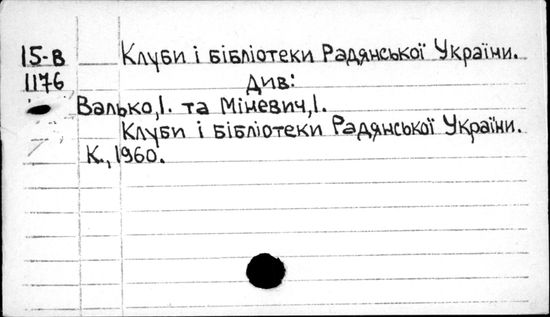 15-В Клуби і бібліотеки Радянської України.
1176 Див:
Валько,І. та Міневич,І.
Клуби і бібліотеки Радянської України.
К., 1960.